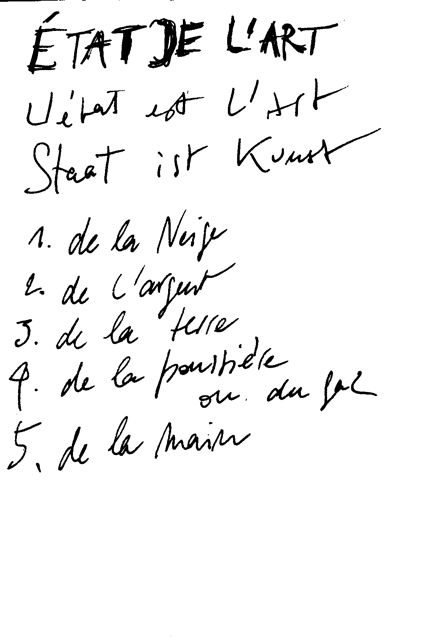 ÉTAT DE L'ART
L'état est L'Art
Staat ist Kunst
1. de la Neige
2. de L'argent
3. de la terre
4. de la poussière
ou du gaz
5. de la main